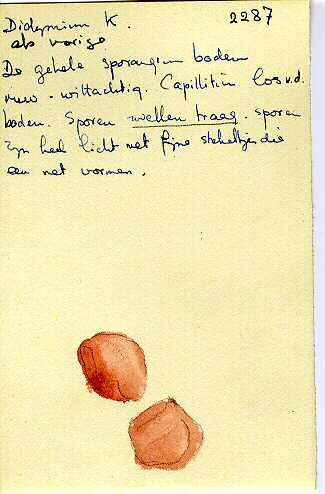 Didymium K. 2287
als vorige
De gehele sporangium bodem
ruw. wittachtig. Capillitium los v.d.
bodem. Sporen zwellen traag. sporen
zijn heel licht met fijne stekeltjes die
een net vormen.